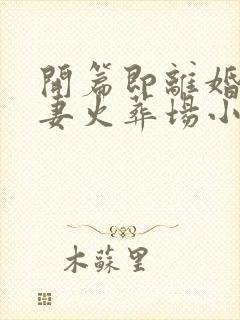 開篇即離婚
妻火葬場小
木蘇里